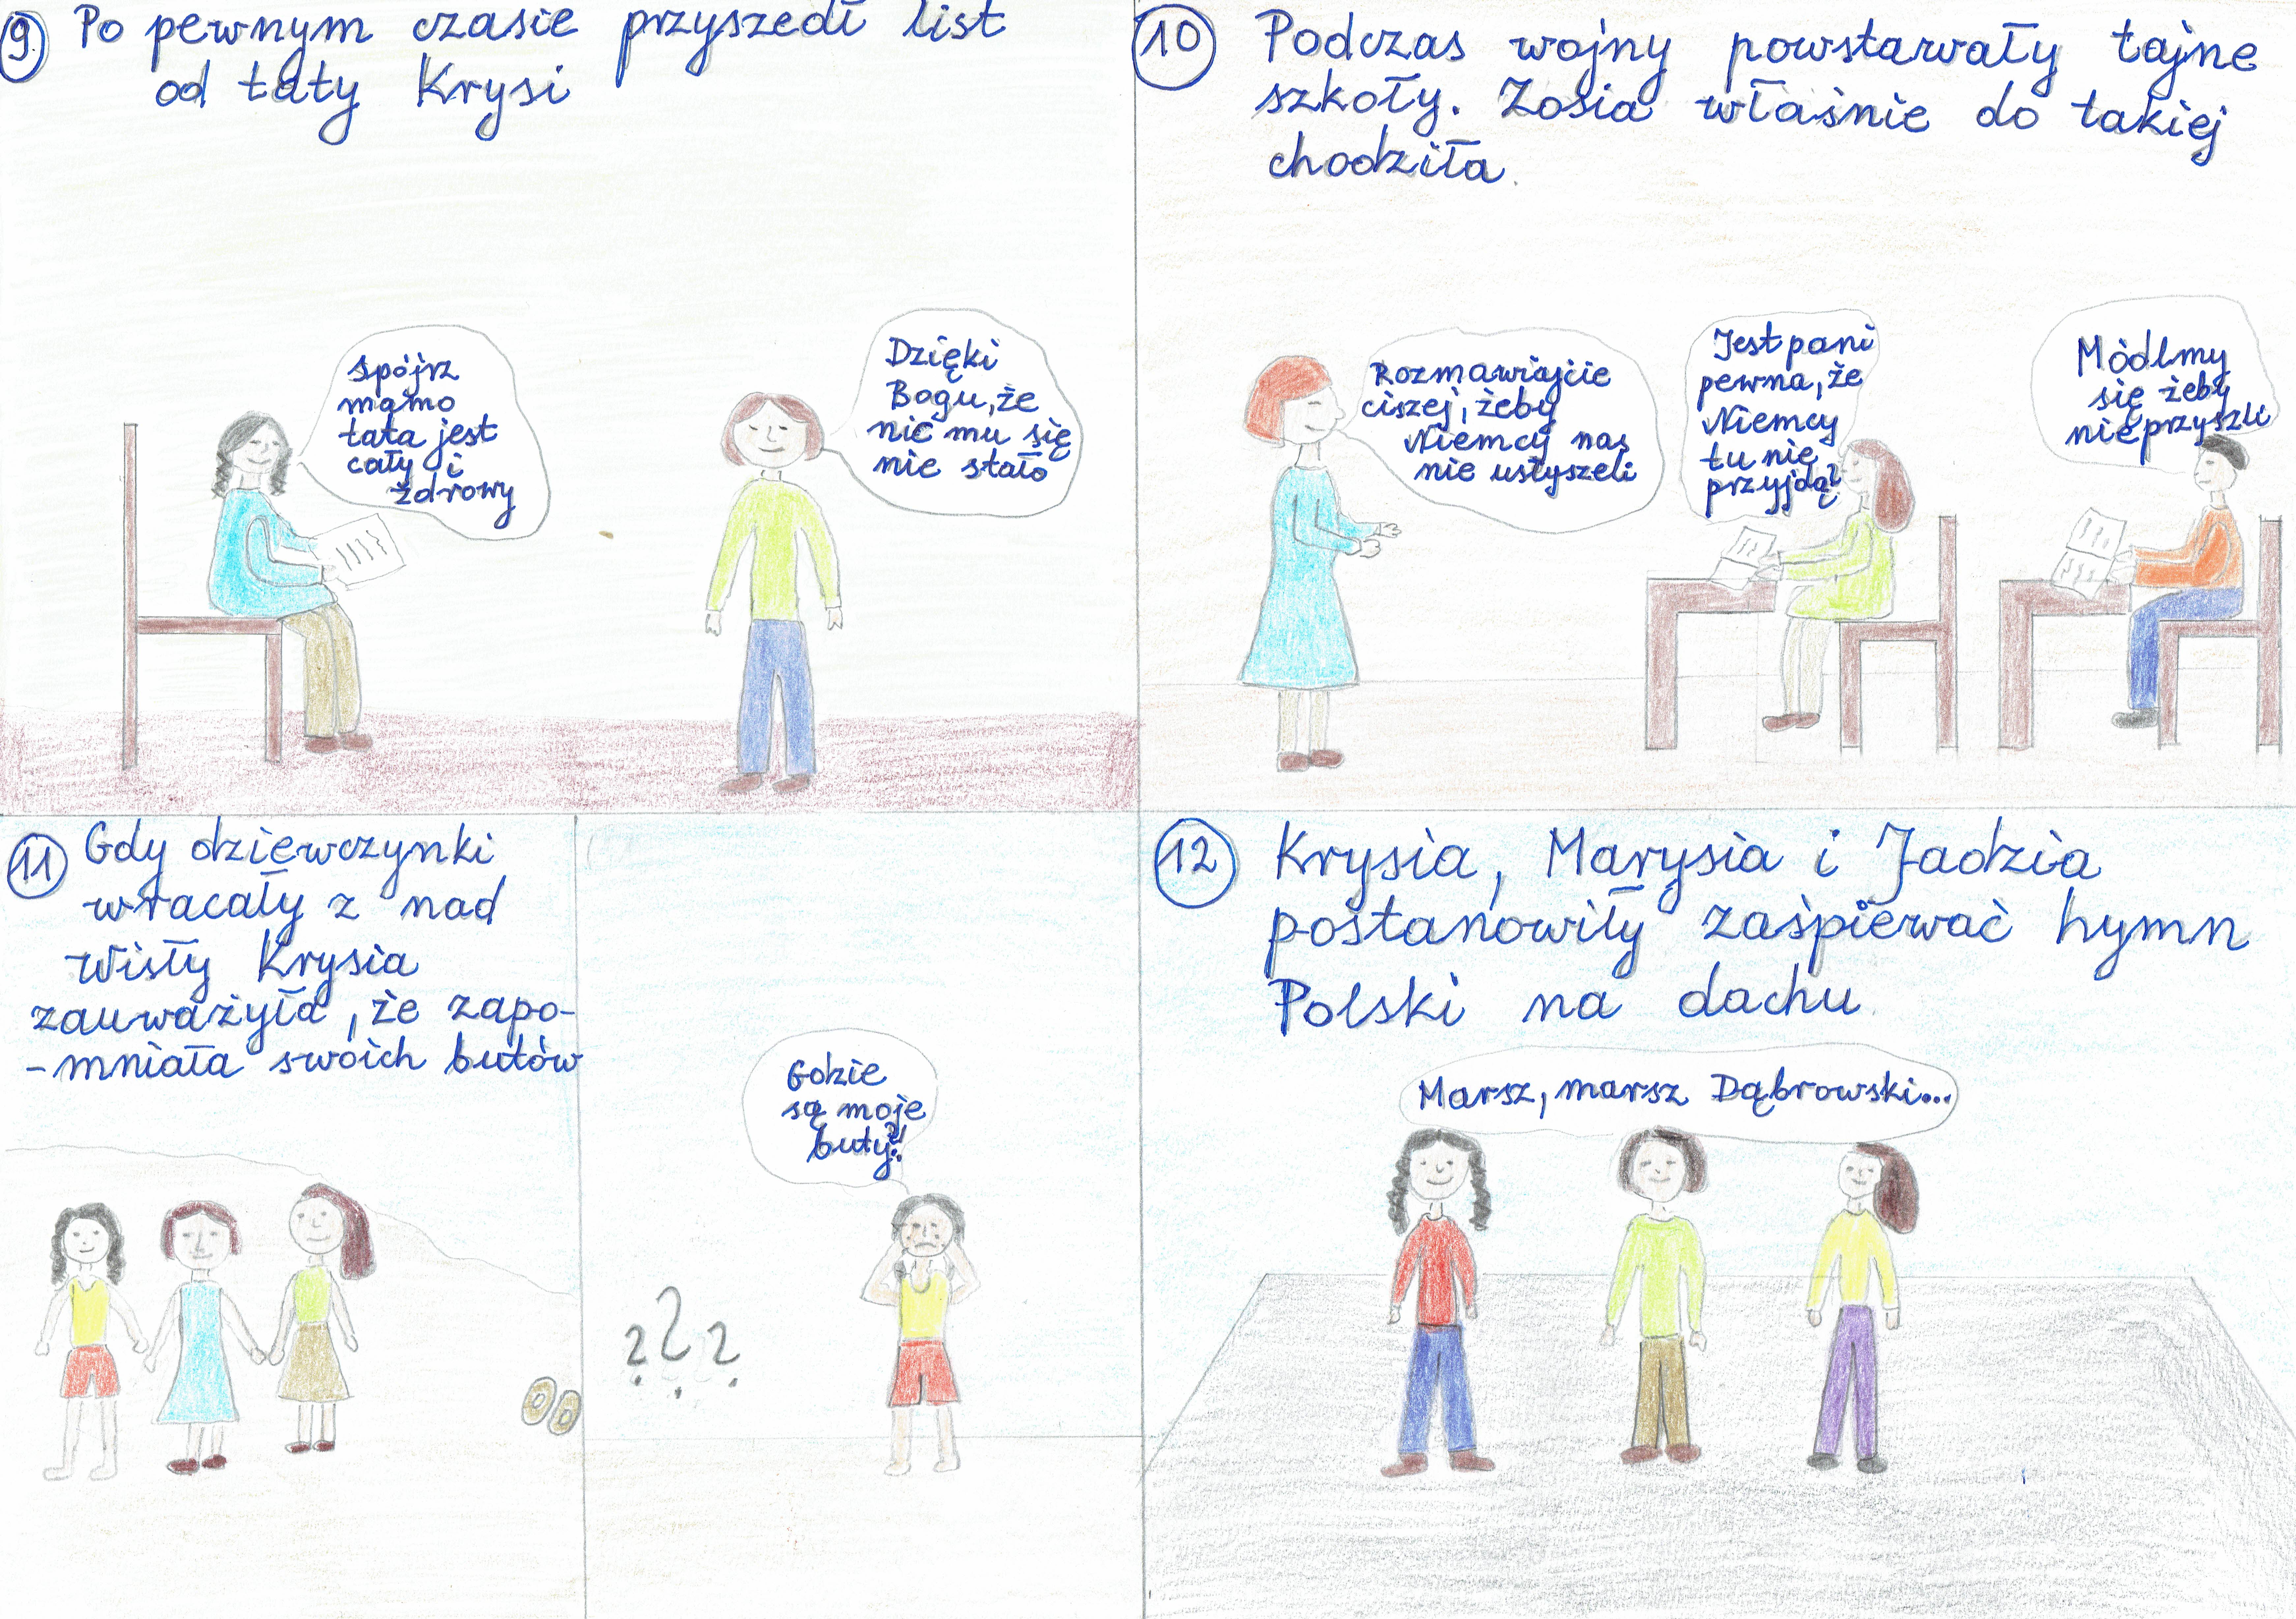 9 Po pewnym czasie przyszedł list
od taty Krysi
Spójrz
mamo
tata jest
cały i
zdrowy
Dzięki
Bogu, że
nic mu się
nie stało
10 Podczas wojny powstawały tajne
szkoły. Zosia właśnie do takiej
chodziła.
Rozmawiajcie
ciszej, żeby
Niemcy nas
nie usłyszeli
Jest pani
pewna, że
Niemcy
tu nie
przyjdą?
Módlmy
się żeby
nie przyszli
11 Gdy dziewczynki
wracały z nad
Wisły Krysia
zauważyła, że zapo-
-mniała swoich butów
Gdzie
są moje
buty?!
? ? ?
12 Krysia, Marysia i Jadzia
postanowiły zaśpiewać hymn
Polski na dachu
Marsz, marsz Dąbrowski...